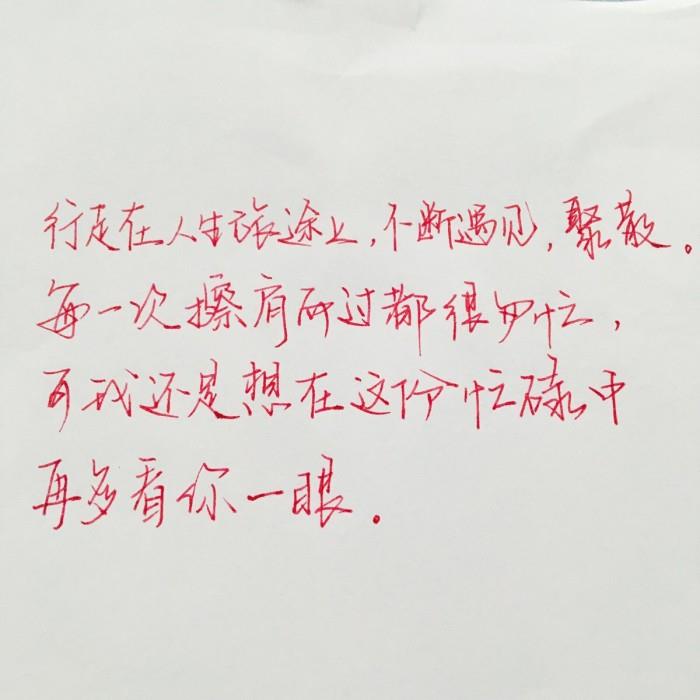 行走在人生旅途上,不断遇见,聚散。
每一次擦肩而过都很匆忙,
可我还是想在这份忙碌中
再多看你一眼.